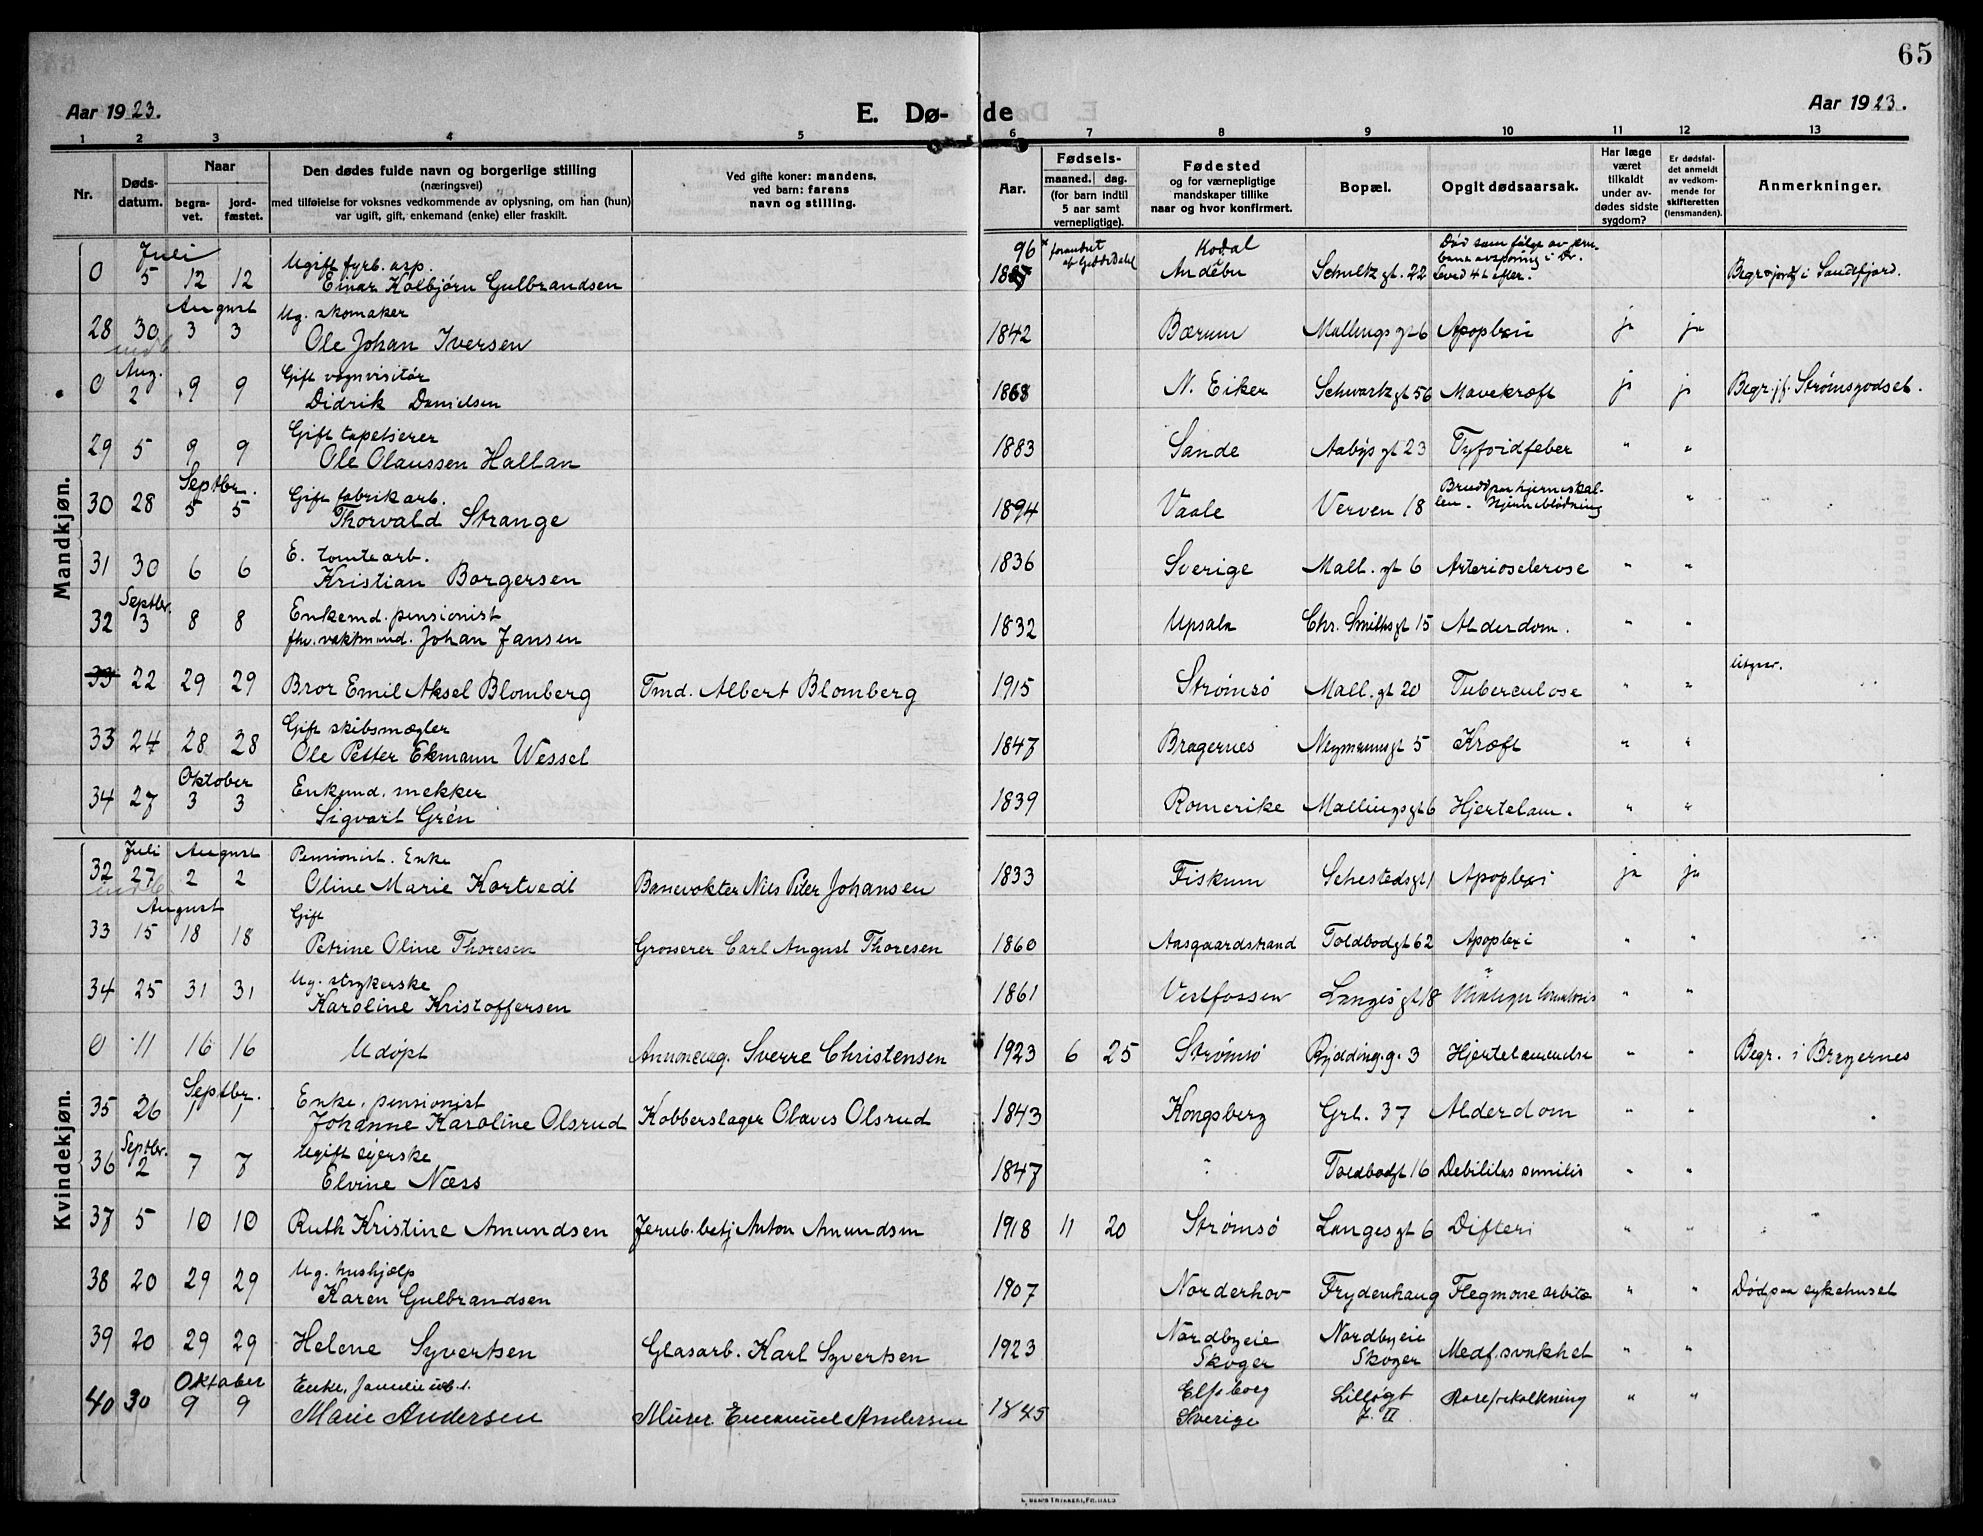 65
Aar 1923.
E. Dø- de
Aar 1923.
1 2 3 4 5 6 7 8 9 10 11 12 13
Nr.
Døds-
datum.
Naar
begra-
vet.
jord-
fæstet.
Den dødes fulde navn og borgerlige stilling
(næringsvei)
med tilføielse for voksnes vedkommende av oplysning, om han (hun)
var ugift, gift, enkemand (enke) eller fraskilt.
Ved gifte koner: mandens,
ved barn: farens
navn og stilling.
Aar.
Fødsels-
maaned. dag.
(for barn indtil
5 aar samt
vernepligtige).
Fødested
og for værnepligtige
mandskaper tillike
naar og hvor konfirmert.
Bopæl.
Opgit dødsaarsak.
Har læge
været
tilkaldt
under av-
dødes sidste
sygdom?
Er dødsfal-
det anmeldt
av vedkom-
mende for
skifteretten
(lensmanden).
Anmerkninger.
Mandkjøn.
Juli 96 Kodal Død som følge av
Ugift fyrb. asp.
0 5 12 12 Einar Kolbjørn Gulbrandsen Andebu Schultz gt. 22 Begr. i Sandefjord.
August
Ug. skomaker
28 30 3 3 Ole Johan Iversen 1842 Bærum Mallings gt 6 Apoplexi ja ja
indb.
Aug.
Gift vognvisitør
0 2 9 9 Didrik Danielsen 1868 N. Eiker Schwartz gt 56 Mavekræft ja ja Begr. jf. Strømsgodset.
Gift tapetserer
29 5 9 9 Ole Olaussen Hallan 1883 Sande Aabys gt 23 Tyfoidfeber " "
Septbr.
Gift fabrikarb. Brudd paa hjerneskal-
30 28 5 5 Thorvald Strange 1894 Vaale Verven 18 len. Hjerneblødning "
E. tomtearb.
31 30 6 6 Kristian Borgersen 1836 Sverige Mall. gt 6 Arteriosclerose " "
Septbr.
Enkemd. pensionist
32 3 8 8 fhv. vaktmand. Johan Jansen 1832 Upsala Chr. Smithsgt 15 Alderdom. " "
33 22 29 29 Bror Emil Aksel Blomberg Tmd. Albert Blomberg 1915 Strømsø Mall. gt 20 Tuberculose " "
Gift skibsmægler
33 24 28 28 Ole Petter Ekmann Wessel 1847 Bragernes Neumannsgt 5 Kræft " "
Oktober
Enkemd. mekker
34 27 3 3 Sigvart Grén 1839 Romerike Mallingsgt 6 Hjertelam. " "
Kvindekjøn.
Juli August
Pensionist. Enke
32 27 2 2 Oline Marie Kortvedt Banevokter Nils Peter Johansen 1833 Fiskum Sehestedsgt 1 Apoplexi ja ja
indb.
August
Gift
33 15 18 18 Petrine Oline Thoresen Grosserer Carl August Thoresen 1860 Aasgaardstrand Toldbodgt 62 Apoplexi " "
Ug. strykerske
34 25 31 31 Karoline Kristoffersen 1861 Vestfossen Langes gt 18 " "
0 11 16 16 Udøpt Annonceag. Sverre Christensen 1923 6 25 Strømsø Rydding. g. 3 Hjertelammelse " " Begr. i Bragernes
Septbr.
Enke. pensionist
35 26 1 1 Johanne Karoline Olsrud Kobberslager Olaves Olsrud 1843 Kongsberg Grl. 37 Alderdom " "
Septbr.
Ugift syerske
36 2 7 7 Elvine Næss 1847 " Toldbodgt 16 Debilitas senilis " "
37 5 10 10 Ruth Kristine Amundsen Jernb. betj Anton Amundsen 1918 11 20 Strømsø Langes gt 6 Difteri " "
Ug. hushjælp
38 20 29 29 Karen Gulbrandsen 1907 Norderhov Frydenhaug Flegmone orbita " " Død paa sykehuset
Nordbyeie Nordbyeie
39 20 29 29 Helene Syvertsen Glasarb. Karl Syvertsen 1923 Skoger Skoger Medf. svakhet " "
Oktober
Elfsborg Lilløgt
40 30 9 9 Marie Andersen Murer Emanuel Andersen 1845 Sverige 7. II Aareforkalkning " "